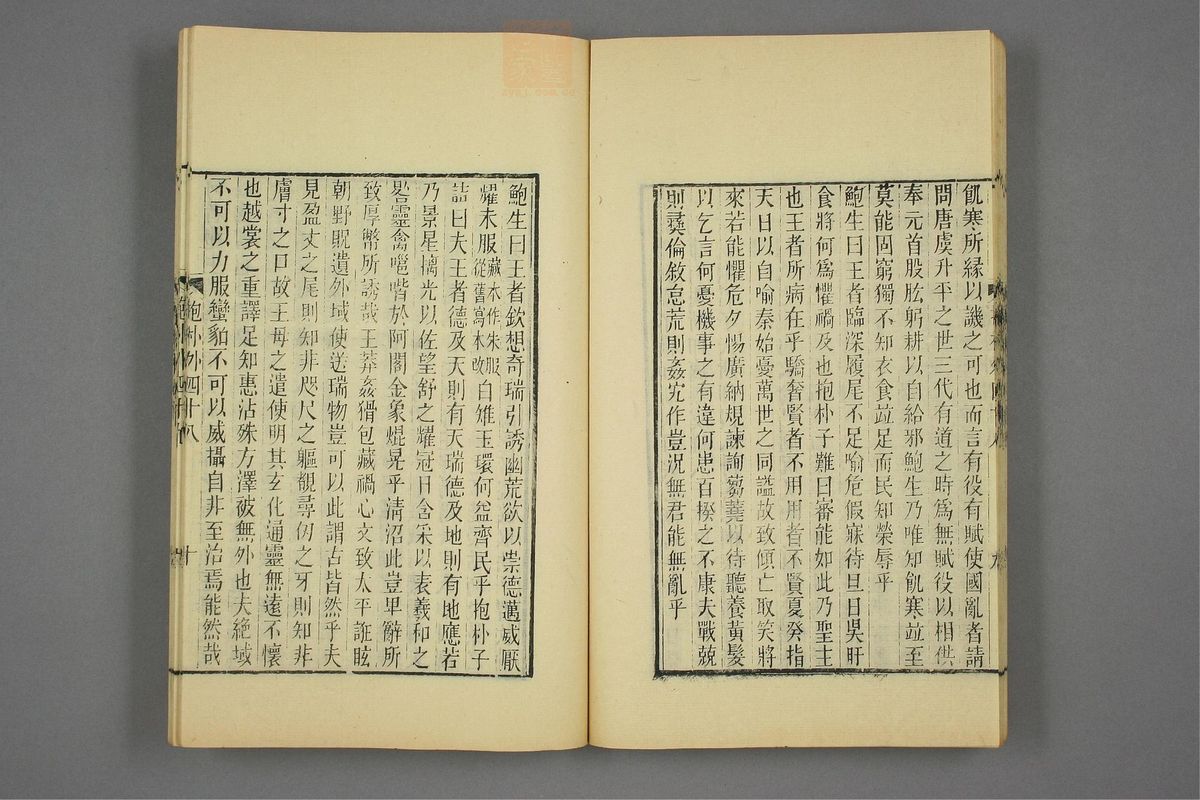 飢寒所緣以譏之可也而言有役有賦使國亂者請
問唐虞升平之世三代有道之時爲無賦役以相供
奉元首股肱躬耕以自給邪鮑生乃唯知飢寒竝至
莫能固窮獨不知衣食竝足而民知榮辱乎
鮑生曰王者臨深履尾不足喻危假寐待旦日昃旰
食將何爲懼禍及也抱朴子難曰審能如此乃聖主
也王者所病在乎驕奢賢者不用用者不賢夏癸指
天日以自喻秦始憂萬世之同諡故致傾亡取笑將
來若能懼危夕惕廣納規諫詢蒭蕘以待聽養黃髮
以乞言何憂機事之有違何患百揆之不康夫戰兢
則彝倫敘怠荒則姦宄作豈況無君能無亂乎
鮑生曰王者欽想奇瑞引誘幽荒欲以崇德邁威厭
耀未服藏本作朱服從舊寫本改白雉玉環何益齊民乎抱朴子
詰曰夫王者德及天則有天瑞德及地則有地應若
乃景星摛光以佐望舒之耀冠日含采以表羲和之
晷靈禽嗈喈於阿閣金象焜晃乎清沼此豈卑辭所
致厚幣所誘哉王莽姦猾包藏禍心文致太平誑眩
朝野貺遺外域使送瑞物豈可以此謂古皆然乎夫
見盈丈之尾則知非咫尺之軀覩尋仞之牙則知非
膚寸之口故王母之遣使明其玄化通靈無遠不懷
也越裳之重譯足知惠沾殊方澤被無外也夫絕域
不可以力服蠻貊不可以威攝自非至治焉能然哉
抱朴外四十八
十